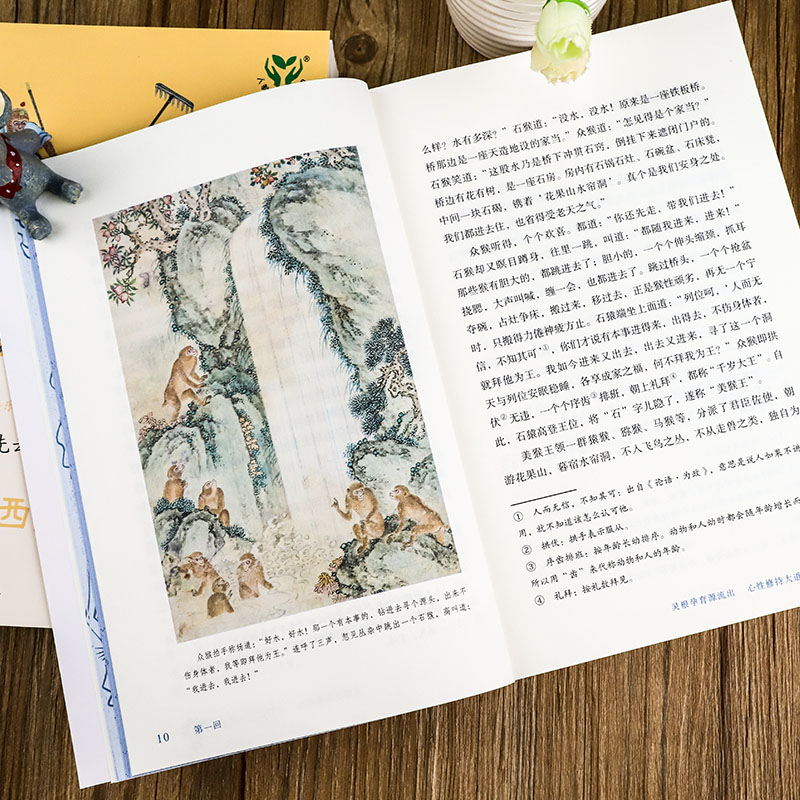 西
众猴拍手称扬道：“好水，好水！那一个有本事的，钻进去寻个源头，出来不
伤身体者，我等即拜他为王。”连呼了三声，忽见丛杂中跳出一个石猴，高叫道：
“我进去，我进去！”
10 第一回
么样？水有多深？”石猴道：“没水，没水！原来是一座铁板桥。
桥那边是一座天造地设的家当。”众猴道：“怎见得是个家当？”
石猴笑道：“这股水乃是桥下冲贯石窍，倒挂下来遮闭门户的。
桥边有花有树，是一座石房。房内有石锅石灶、石碗盆、石床凳，
中间一块石碣，镌着‘花果山水帘洞’。真个是我们安身之处。
我们都进去住，也省得受老天之气。”
众猴听得，个个欢喜。都道：“你还先走，带我们进去！”
石猴却又瞑目蹲身，往里一跳，叫道：“都随我进来，进来！”
那些猴有胆大的，都跳进去了；胆小的，一个个伸头缩颈，抓耳
挠腮，大声叫喊，缠一会，也都进去了。跳过桥头，一个个抢盆
夺碗，占灶争床，搬过来，移过去，正是猴性顽劣，再无一个宁
时，只搬得力倦神疲方止。石猿端坐上面道：“列位呵，‘人而无
信，不知其可’①，你们才说有本事进得来，出得去，不伤身体者，
就拜他为王。我如今进来又出去，出去又进来，寻了这一个洞
天与列位安眠稳睡，各享成家之福，何不拜我为王？”众猴即拱
伏②无违，一个个序齿③排班，朝上礼拜④，都称“千岁大王”。自
此，石猿高登王位，将“石”字儿隐了，遂称“美猴王”。
美猴王领一群猿猴、猕猴、马猴等，分派了君臣佐使，朝
游花果山，暮宿水帘洞，不入飞鸟之丛，不从走兽之类，独自为
① 人而无信，不知其可：出自《论语·为政》，意思是说人如果不讲
用，就不知道该怎么认可他。
② 拱伏：拱手表示服从。
③ 序齿排班：按年龄长幼排序。动物和人幼时都会随年龄增长而
所以用“齿”来代称动物和人的年龄。
④ 礼拜：按礼数拜见。
灵根孕育源流出 心性修持大道